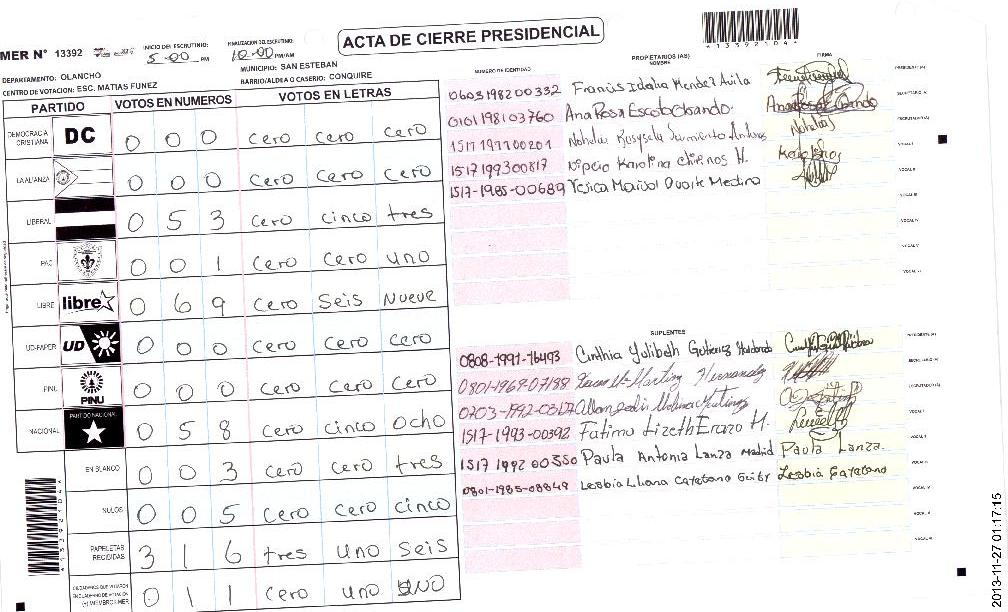 ACTA DE CIERRE PRESIDENCIAL
*13592104*
MER N° 13392
INICIO DEL ESCRUTINIO: 5:00 PM
FINALIZACION DEL ESCRUTINIO: 10:00 PM/AM
DEPARTAMENTO: OLANCHO
MUNICIPIO: SAN ESTEBAN
CENTRO DE VOTACION: ESC. MATIAS FUNEZ
BARRIO/ALDEA O CASERIO: CONQUIRE
PARTIDO VOTOS EN NUMEROS VOTOS EN LETRAS
DEMOCRACIA CRISTIANA DC 0 0 0 cero cero cero
LA ALIANZA 0 0 0 cero cero cero
LIBERAL 0 5 3 cero cinco tres
PAC 0 0 1 cero cero uno
LIBRE libre 0 6 9 cero seis nueve
UD-FAPER UD 0 0 0 cero cero cero
PINU PINU 0 0 0 cero cero cero
NACIONAL PARTIDO NACIONAL 0 5 8 cero cinco ocho
EN BLANCO 0 0 3 cero cero tres
NULOS 0 0 5 cero cero cinco
PAPELETAS RECIBIDAS 3 1 6 tres uno seis
CIUDADANOS QUE VOTARON EN CUADERNO DE VOTACION (+) MIEMBROS MER 0 1 1 cero uno uno
NUMERO DE IDENTIDAD PROPIETARIOS (AS) NOMBRE FIRMA
0603198200332 Francis Idalia Mendez Avila PRESIDENTE (A)
0101198103760 Ana Rosa Escoto Obando SECRETARIO (A)
1517197700201 ESCRUTADOR (A)
1517199300817 Karolina H. VOCAL I
1517-1985-00689 Yesica Marisol Duarte Medina VOCAL II
VOCAL III
VOCAL IV
VOCAL V
VOCAL VI
SUPLENTES
0808-1991-76493 Cinthia Yulibeth Gutierrez PRESIDENTE (A)
0801-1969-07188 Martinez Hernandez SECRETARIO (A)
0703-1992-03127 Molina ESCRUTADOR (A)
1517-1993-00392 Fatima Lizeth Erazo M. VOCAL I
1517 1992 00350 Paula Antonia Lanza Madrid Paula Lanza. VOCAL II
0801-1985-08849 Lesbia Liliana Cayetano Lesbia Cayetano
2013-11-27 01:17:15